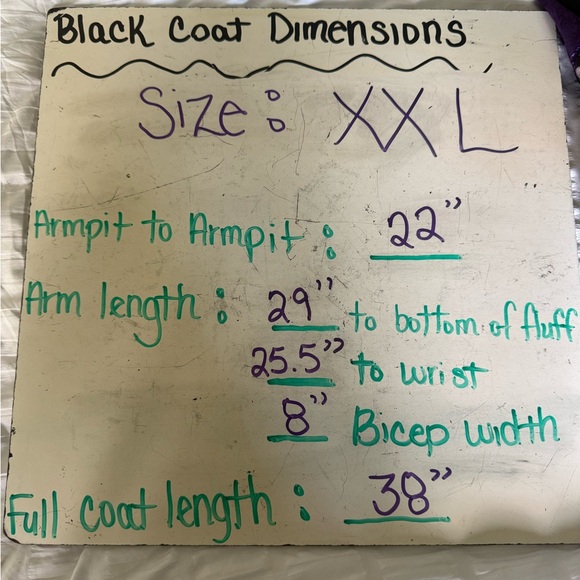 Black Coat Dimensions
Size: XXL
Armpit to Armpit: 22"
Arm length: 29" to bottom of fluff
25.5" to wrist
8" Bicep width
Full coat length: 38"